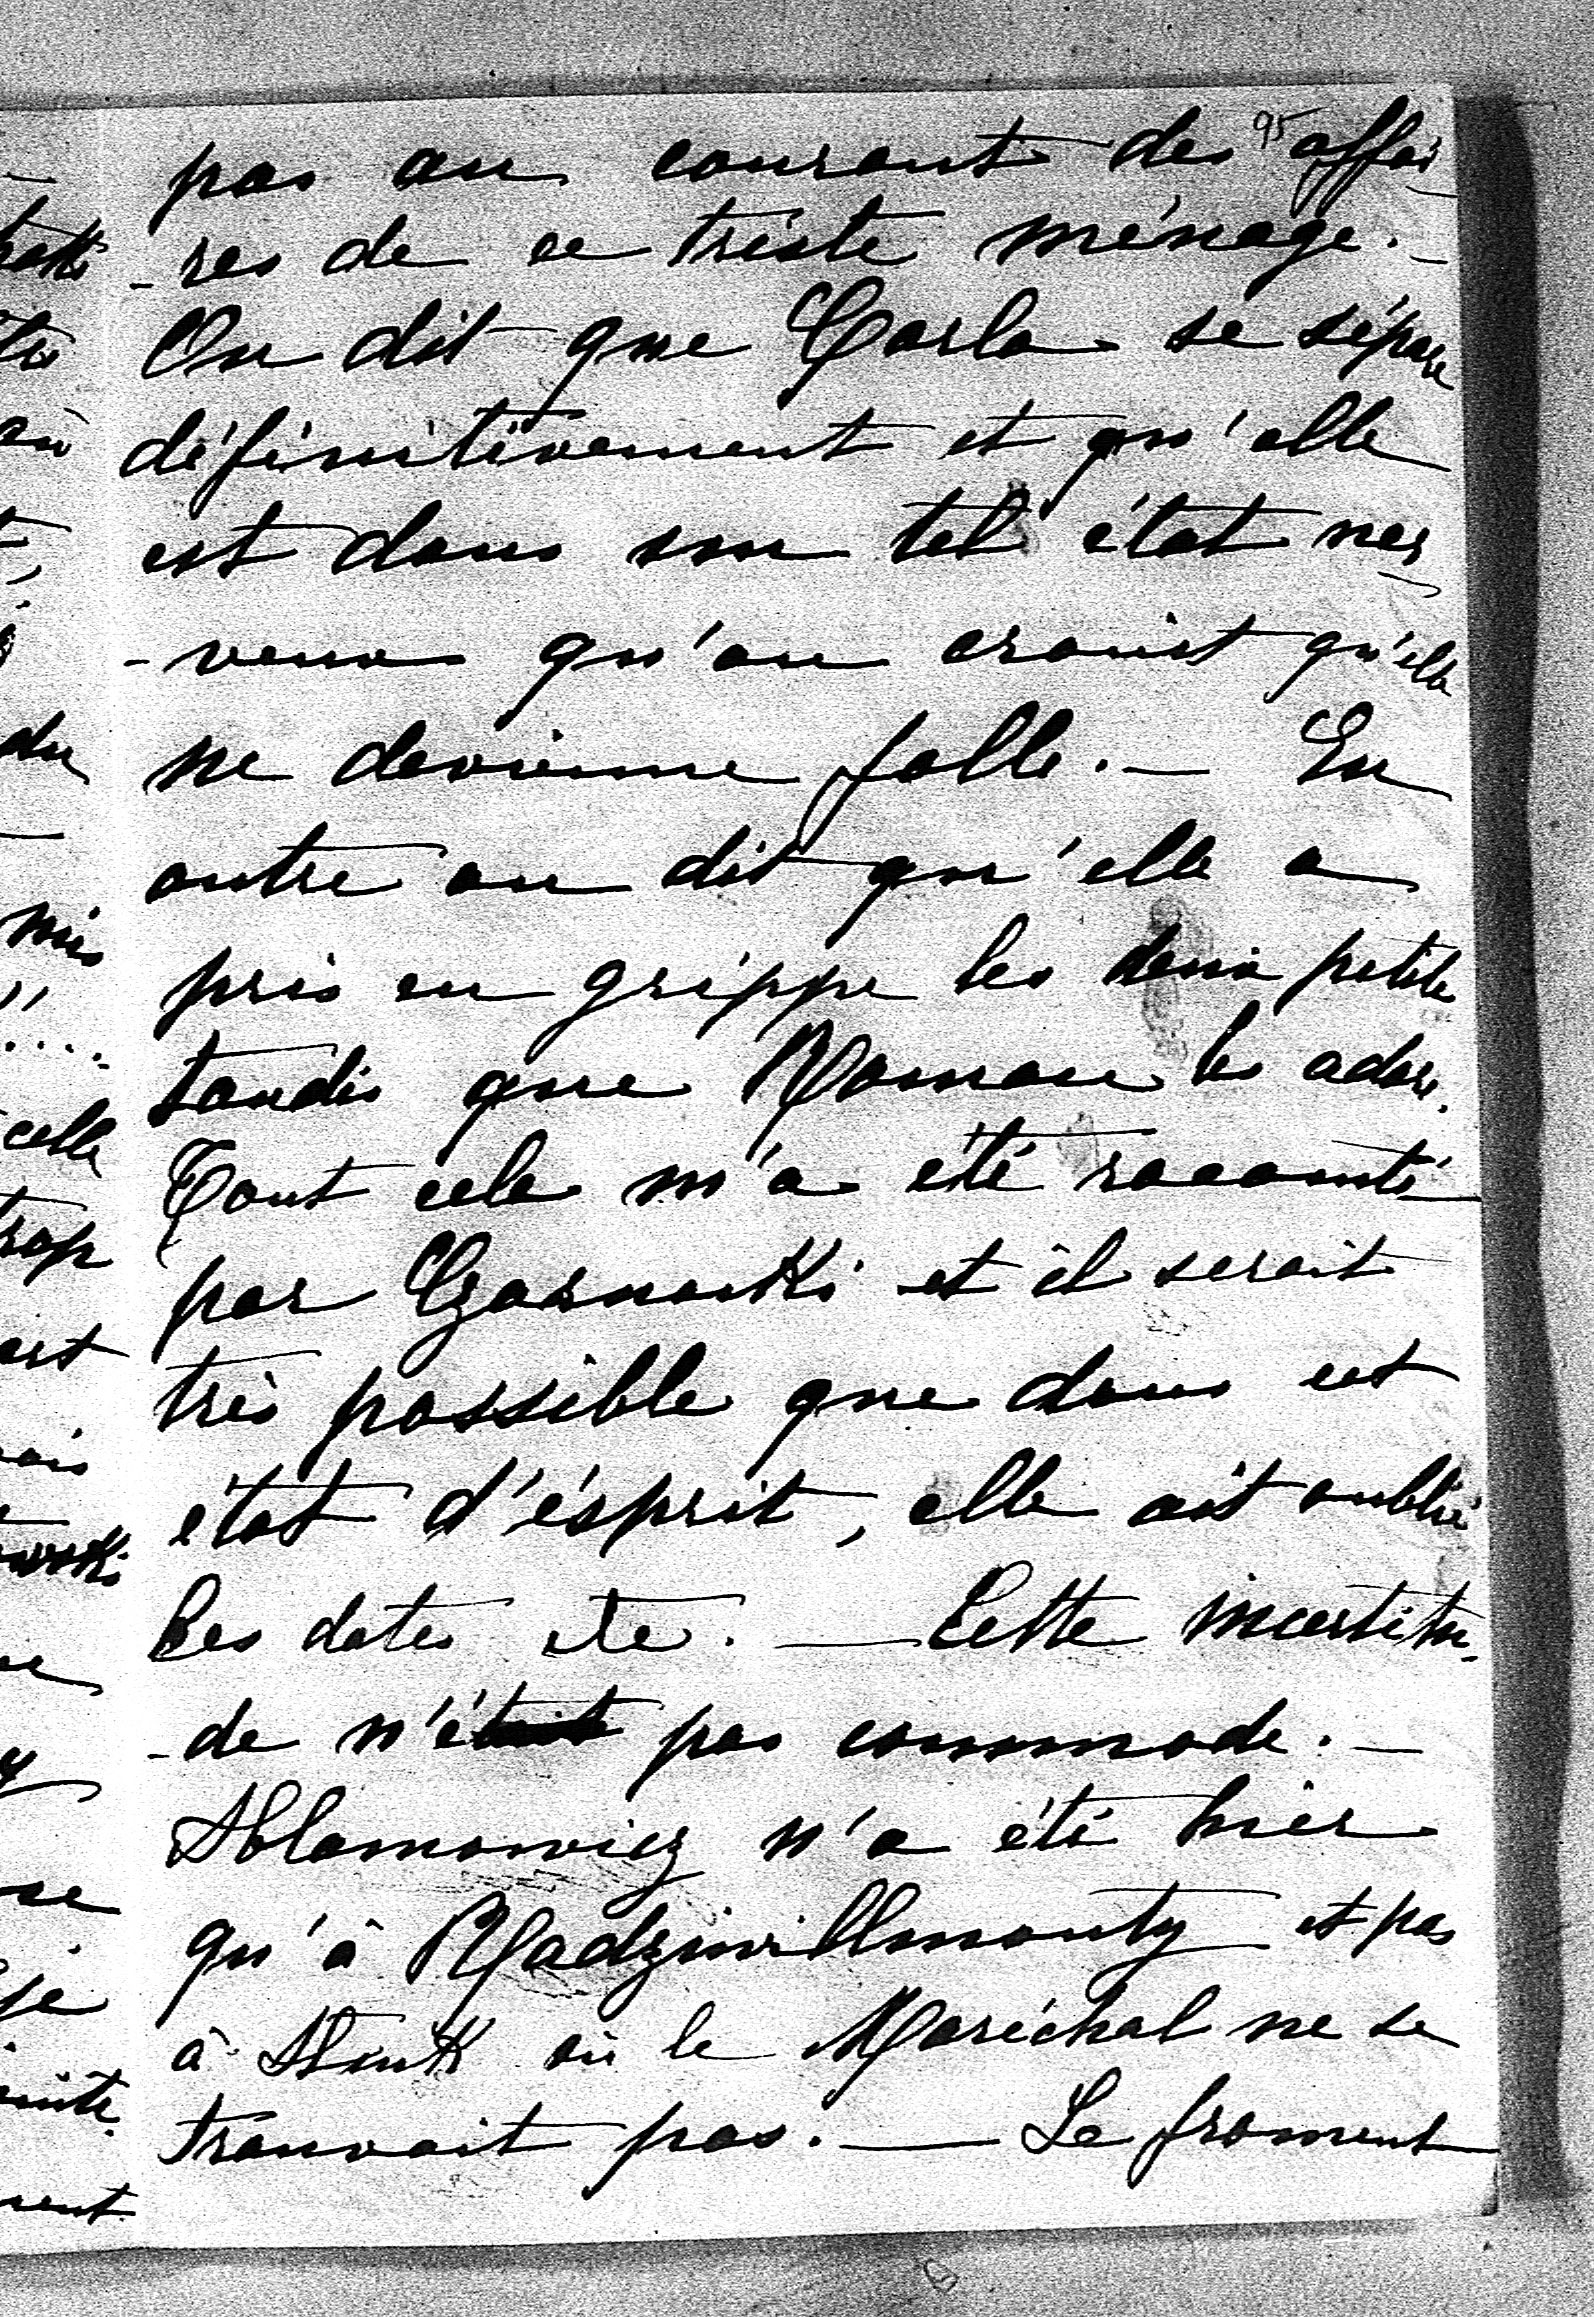 95
pas au courant des affai
-res de ce triste ménage. -
On dit que Carla se sépare
définitivement et qu'elle
est dans un tel état ner
-veux qu'on craint qu'elle
ne devienne folle. - En
outre on dit qu'elle a
pris en grippe les deux petits
tandis que Roman les adore.
Tout cela m'a été raconté
par Czarnowski et il serait
très possible que dans cet
état d'ésprit, elle ait oublié
les dates etc. — Cette incertitu-
-de n'était pas commode. -
Ablamowicz n'a été hier
qu'à Radziwillmonty et pas
à où le Maréchal ne se
trouvait pas. — Le froment
du
celle
trop